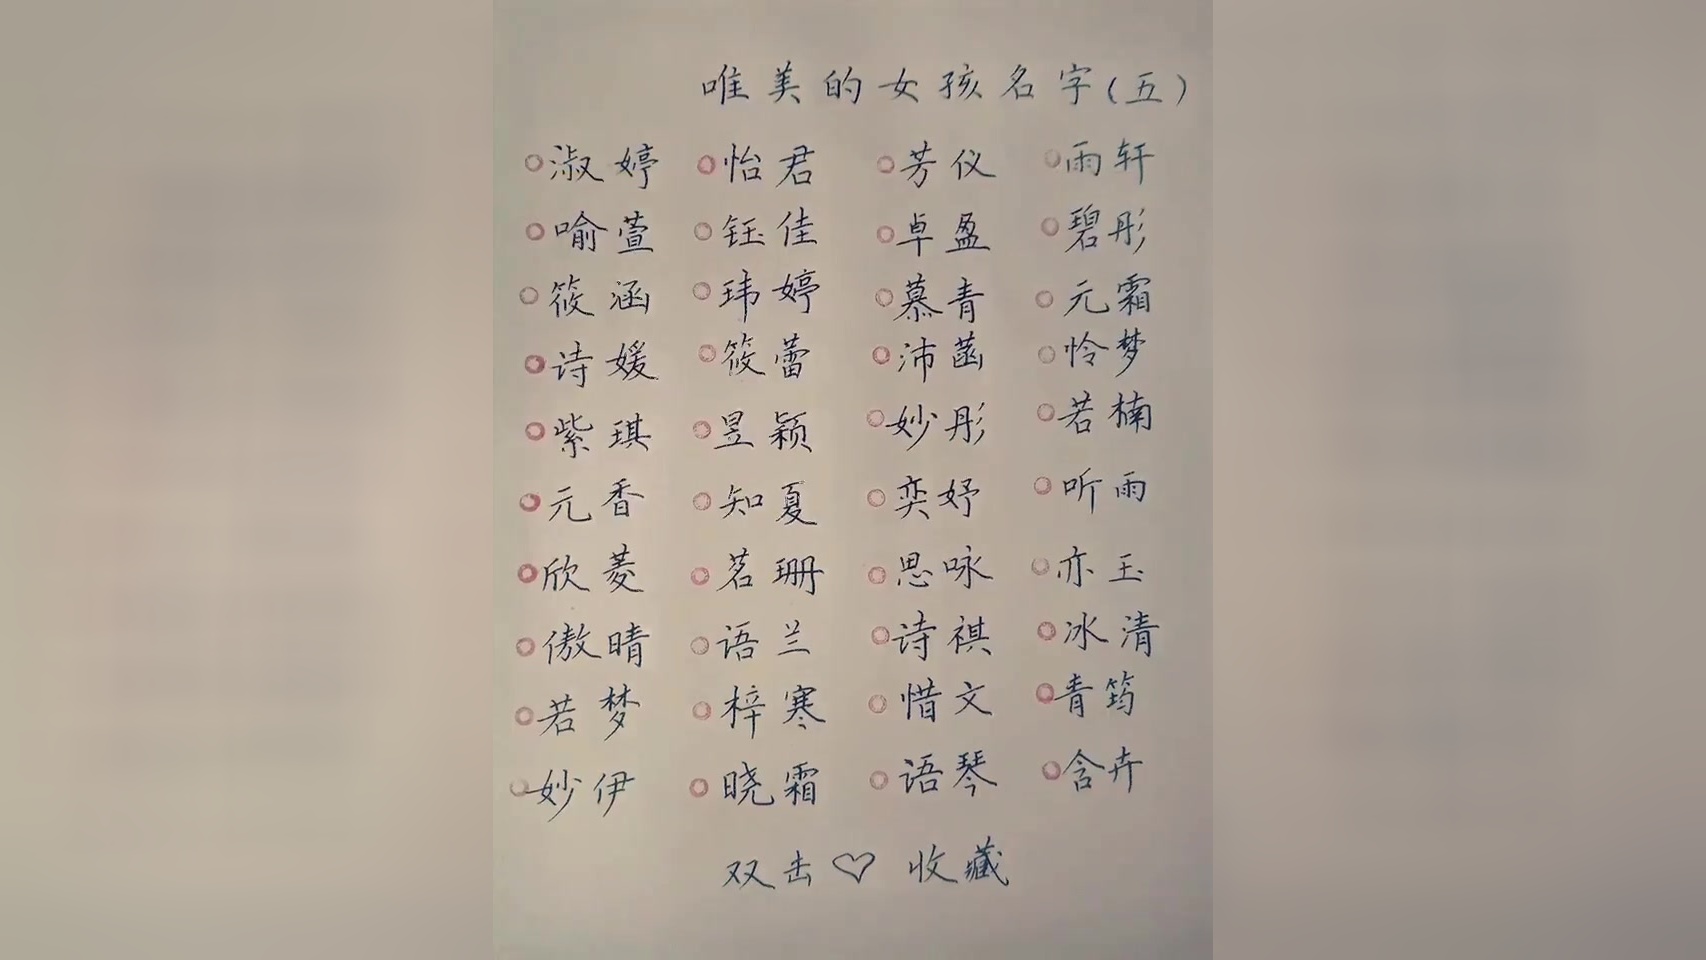 唯美的女孩名字(五)
淑婷 怡君 芳仪 雨轩
喻萱 钰佳 卓盈 碧彤
筱涵 玮婷 慕青 元霜
诗媛 筱蕾 沛菡 怜梦
紫琪 昱颖 妙彤 若楠
元香 知夏 奕妤 听雨
欣菱 茗珊 思咏 亦玉
傲晴 语兰 诗祺 冰清
若梦 梓寒 惜文 青筠
妙伊 晓霜 语琴 含卉
双击♡ 收藏